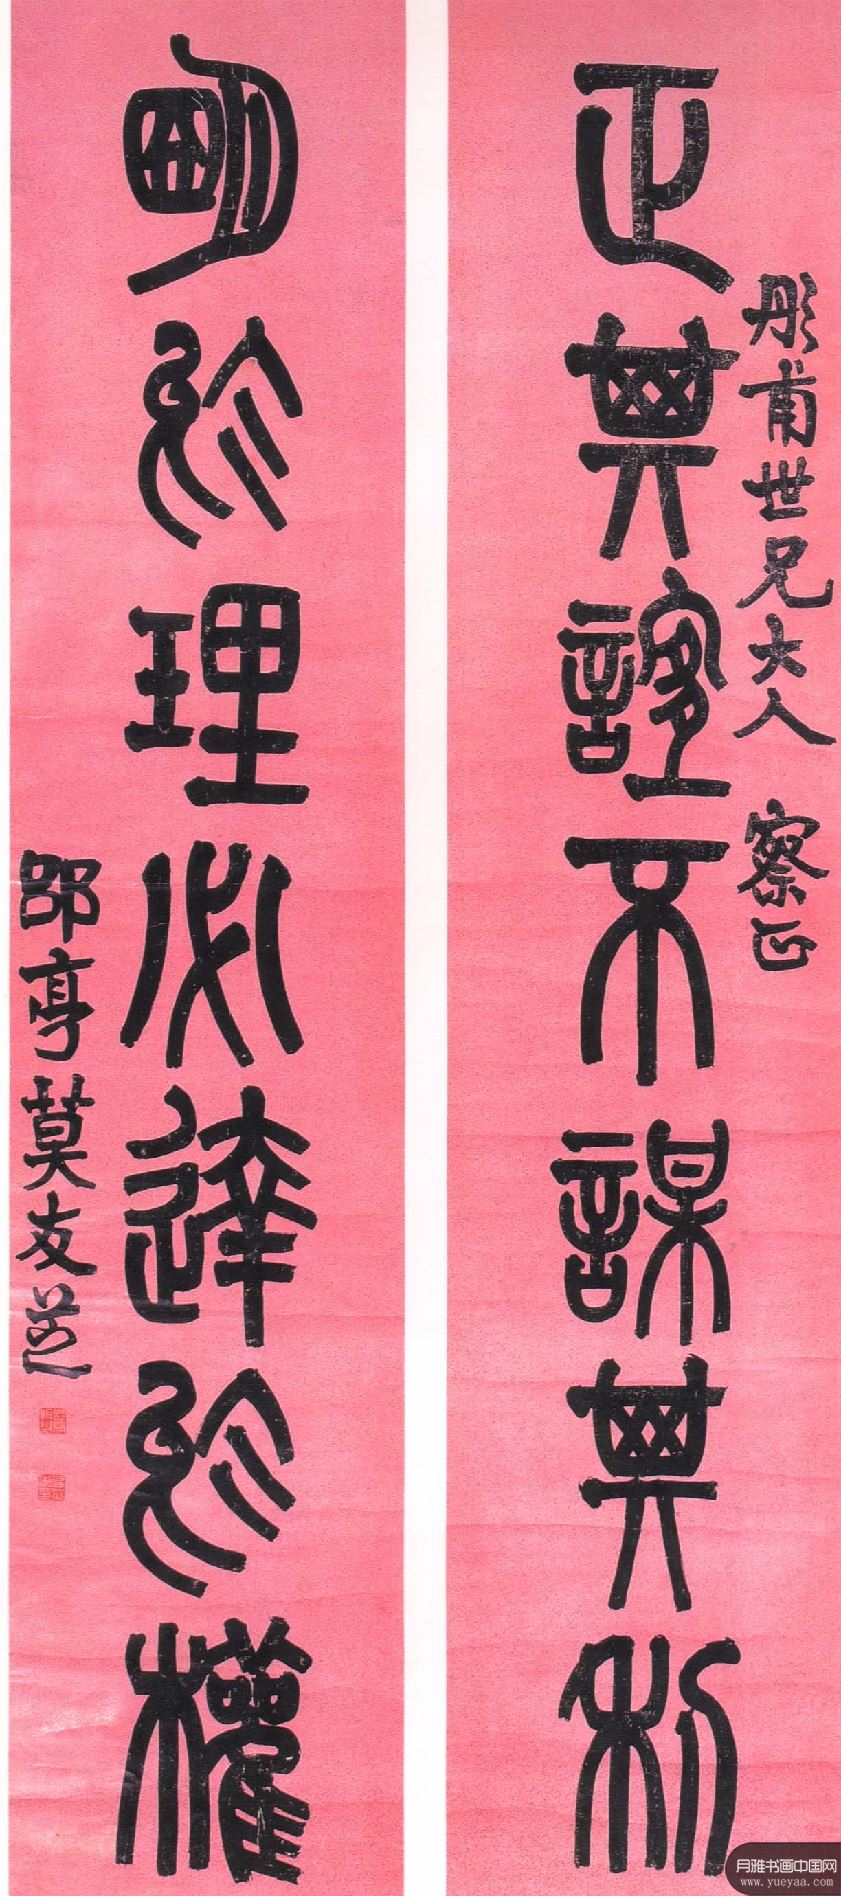 彤甫世兄大人 察正
正其誼不謀其利
明於理必達於權
郘亭莫友芝
月雅书画中国网
www.yueyaa.com